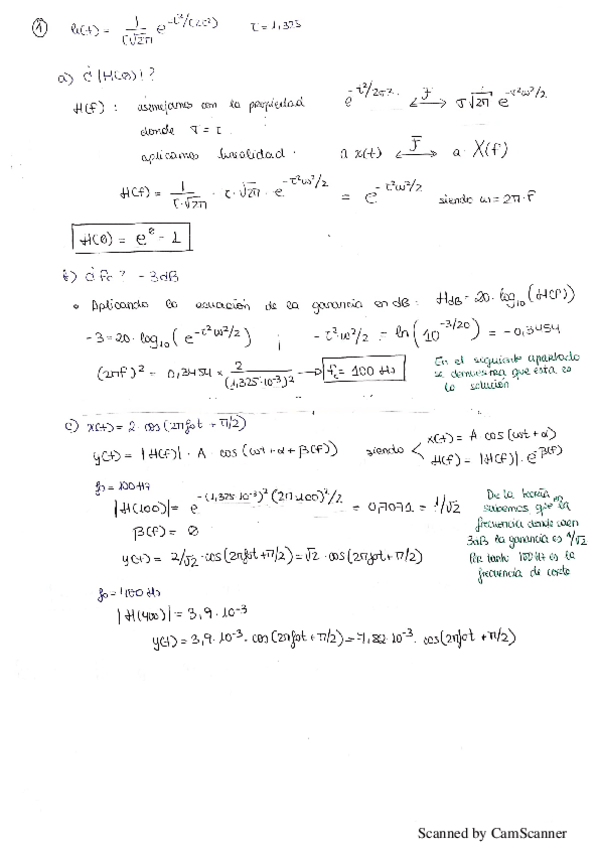 ① h(t) = 1/(τ√2π) e^(-t²/(2τ²)) τ = 1,325
a) ¿ |H(0)| ?
H(f) : asemejamos con la propiedad e^(-t²/2σ²) <-F-> σ√2π e^(-σ²ω²/2)
donde σ = τ
aplicamos linealidad. a x(t) <-F-> a · X(f)
H(f) = 1/(τ·√2π) · τ·√2π · e^(-τ²ω²/2) = e^(-τ²ω²/2) siendo ω = 2π·f
H(0) = e⁰ = 1
b) ¿ fc ? -3dB
• Aplicando la ecuación de la ganancia en dB : H_dB = 20·log₁₀(H(f))
-3 = 20·log₁₀(e^(-τ²ω²/2) ; -τ²·ω²/2 = ln(10^(-3/20)) = -0,3454
(2πf)² = 0,3454 × 2/(1,325·10⁻³)² → fc = 100 Hz
En el siguiente apartado
se demuestra que esta es
la solución
c) x(t) = 2·cos(2πfot + π/2)
y(t) = |H(f)| · A · cos(ωt + α + β(f)) siendo < x(t) = A cos(ωt + α)
H(f) = |H(f)| · e^β(f)
fo = 100 Hz
|H(100)| = e^(-(1,325·10⁻³)²(2π·100)²/2) = 0,7071 = 1/√2
β(f) = 0
y(t) = 2/√2 · cos(2πfot + π/2) = √2 · cos(2πfot + π/2)
De la teoría
sabemos que en la
frecuencia donde caen
3dB la ganancia es 1/√2
Por tanto 100 Hz es la
frecuencia de corte
fo = 400 Hz
|H(400)| = 3,9·10⁻³
y(t) = 3,9·10⁻³ · cos(2πfot + π/2) = 7,82·10⁻³ · cos(2πfot + π/2)
Scanned by CamScanner